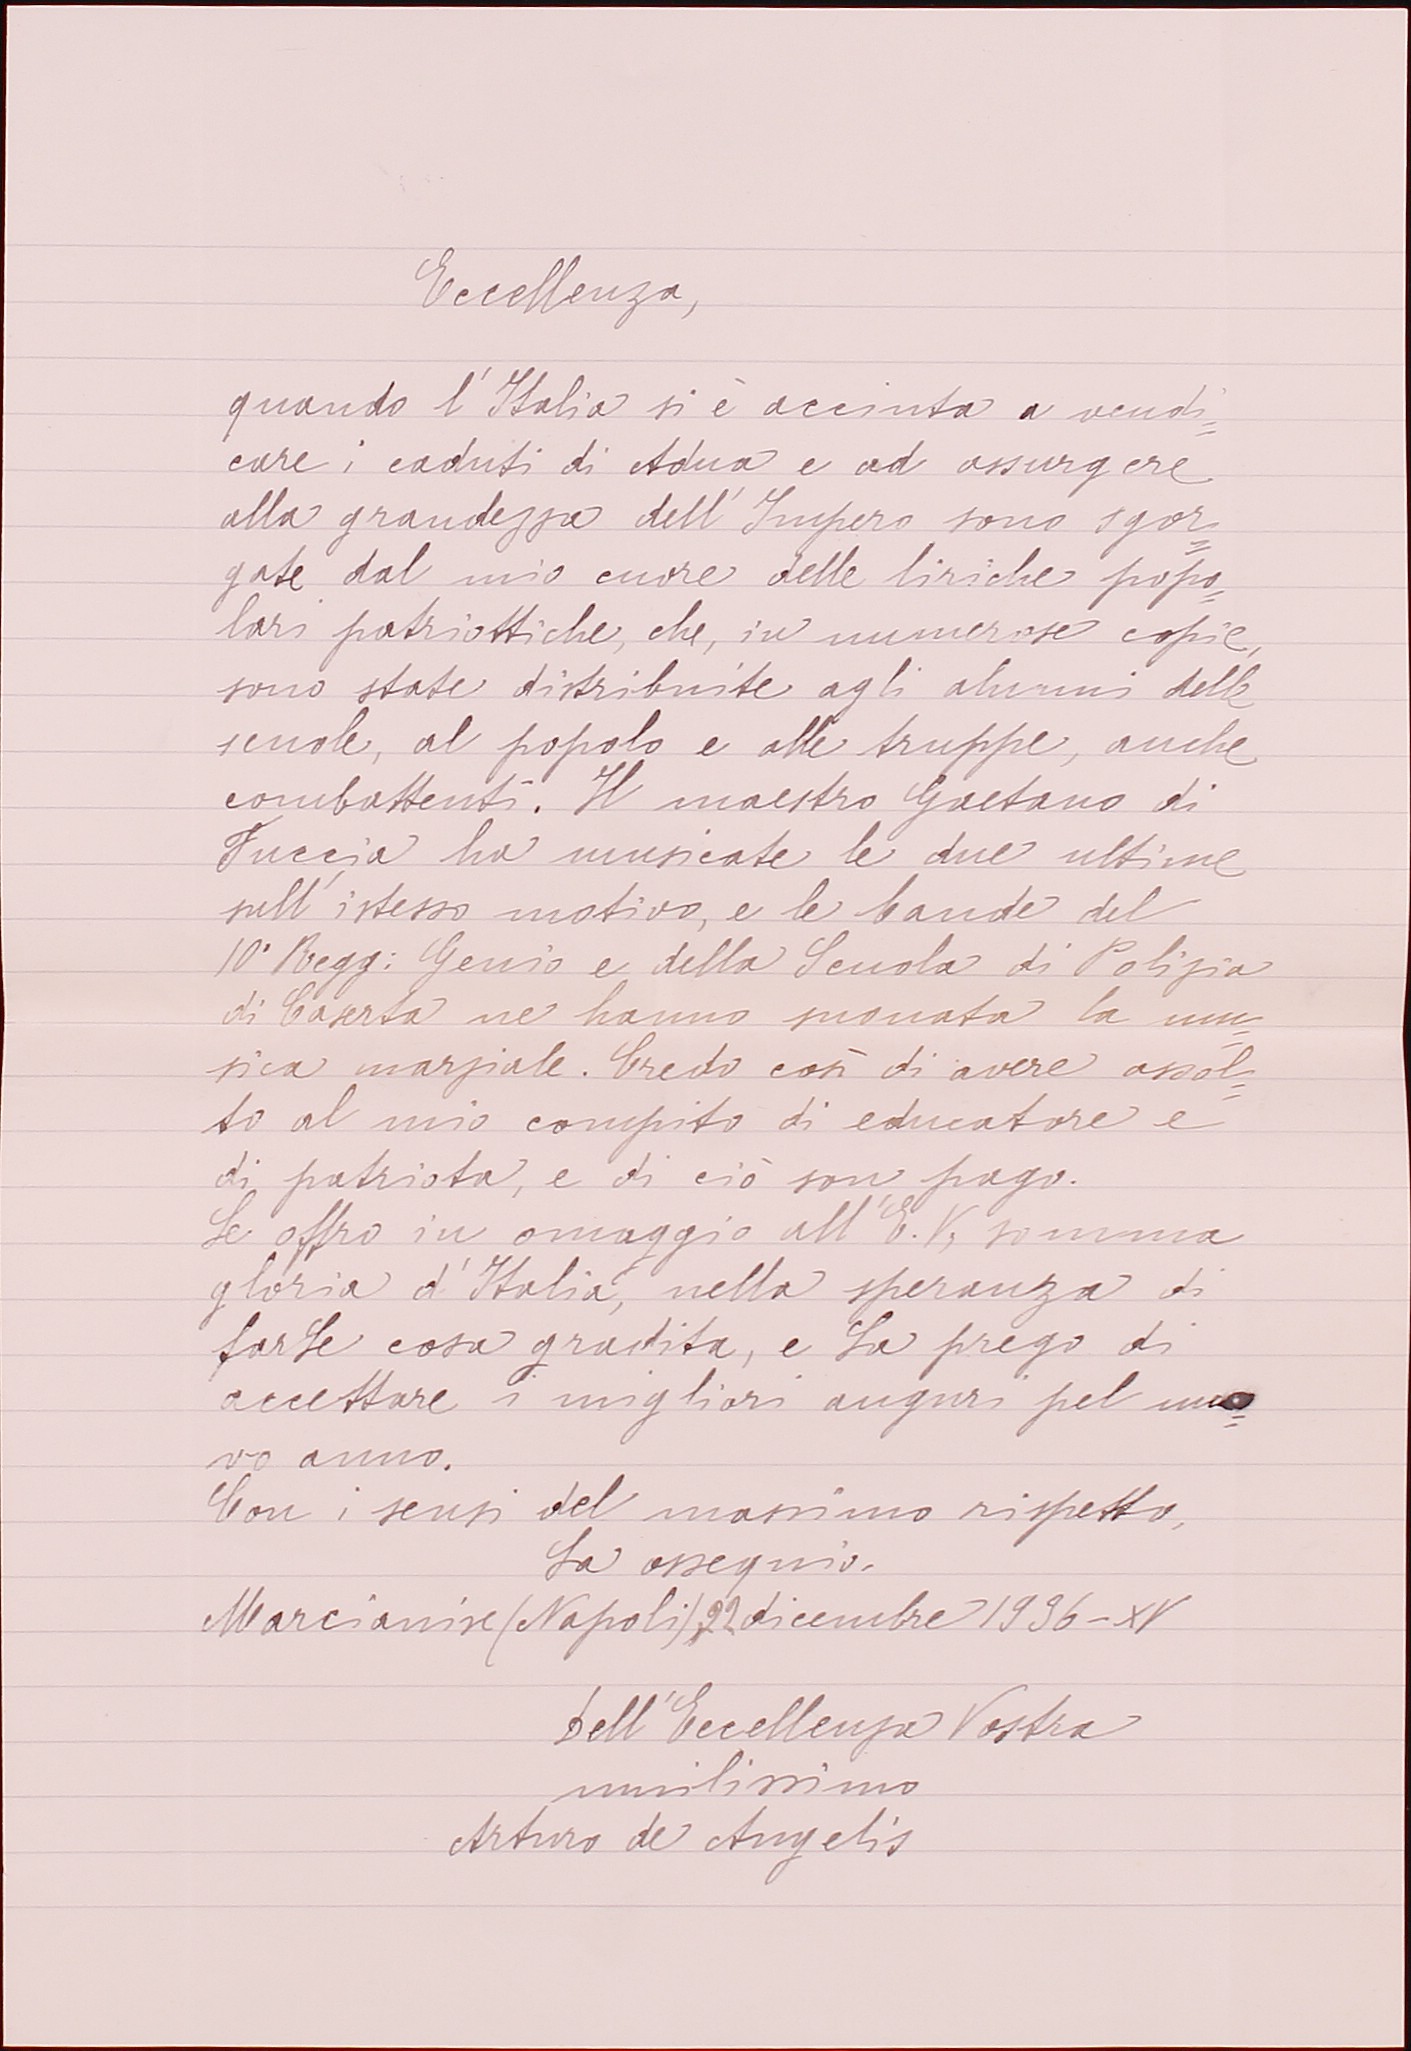 Eccellenza,
quando l'Italia si è accinta a vendi=
care i caduti di Adua e ad assurgere
alla grandezza dell'Impero sono sgor=
gate dal mio cuore delle liriche popo=
lari patriottiche, che, in numerose copie,
sono state distribuite agli alunni delle
scuole, al popolo e alle truppe, anche
combattenti. Il maestro Gaetano di
Tuccia ha musicate le due ultime
sull'istesso motivo, e le bande del
10° Regg: Genio e della Scuola di Polizia
di Caserta ne hanno suonata la mu=
sica marziale. Credo così di avere assol=
to al mio compito di educatore e
di patriota, e di ciò son pago.
Le offro in omaggio all'E.V., somma
gloria d'Italia, nella speranza di
farLe cosa gradita, e La prego di
accettare i migliori auguri pel nuo=
vo anno.
Con i sensi del massimo rispetto,
La ossequio.
Marcianise (Napoli), 22 dicembre 1936-XV
Dell'Eccellenza Vostra
umilissimo
Arturo de Angelis